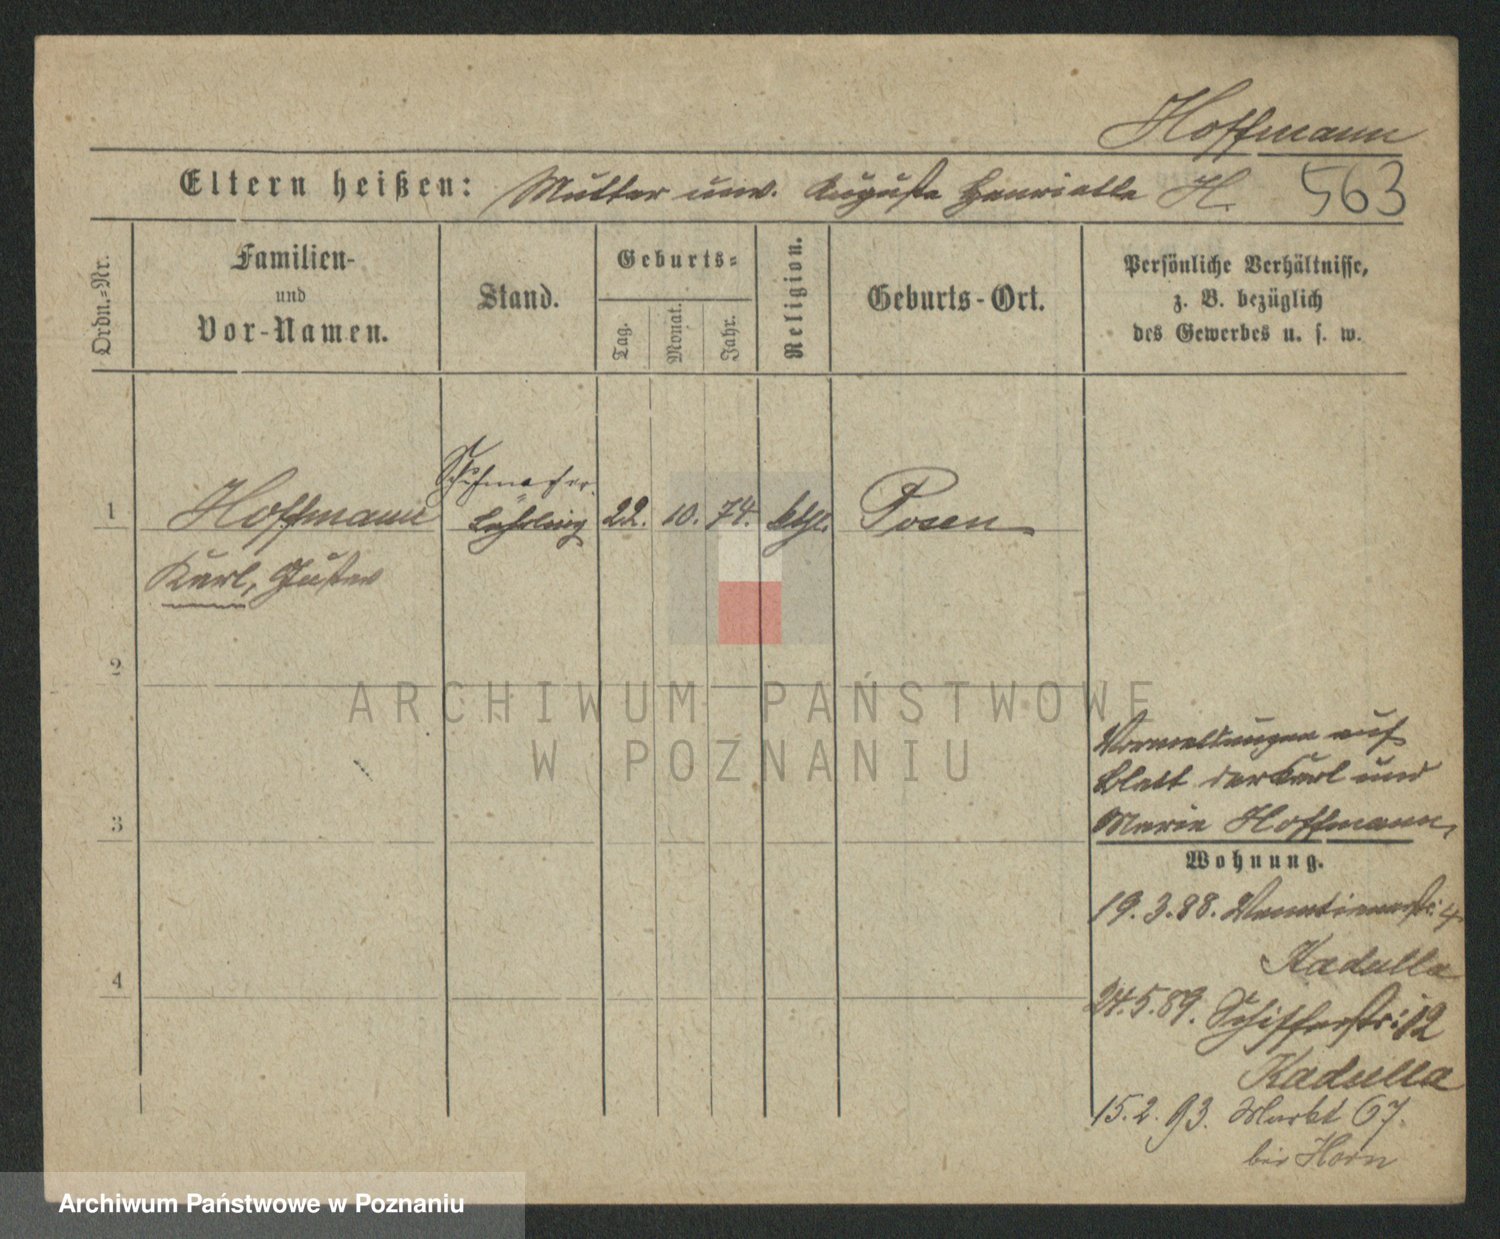 Hoffmann
Eltern heißen: Mutter unv. Auguste Henriette H. 563
Ordn.-Nr.
Familien-
und
Vor-Namen.
Stand.
Geburts-
Tag.
Monat.
Jahr.
Religion.
Geburts-Ort.
Persönliche Verhältnisse,
z. B. bezüglich
des Gewerbes u. s. w.
Schuhmacher
1 Hoffmann Lehrling 22. 10. 74. kth. Posen
Karl, Gustav
2
ARCHIWUM PAŃSTWOWE
W POZNANIU
Vormeldungen auf
Blatt der Karl und
3 Marie Hoffmann,
Wohnung.
19. 3. 88. Venetianerstr: 4.
Kadulla
4
24. 5. 89. Schifferstr: 12
Kadulla
15. 2. 93. Markt 67.
bei Horn
Archiwum Państwowe w Poznaniu